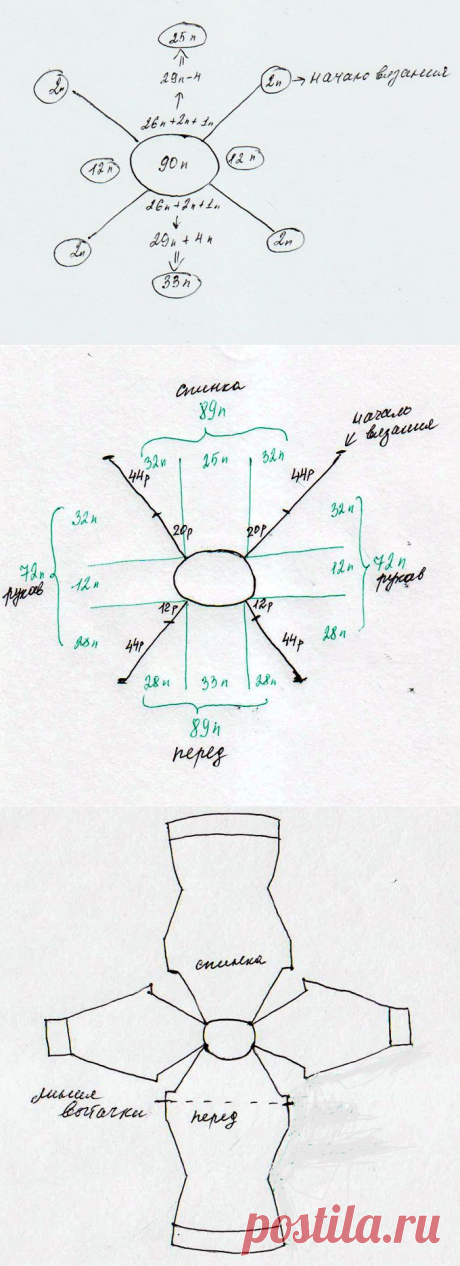 25п
29п-4
2п
2п → начало вязания
26п+2п+1п
12п
90п
12п
26п+2п+1п
29п+4п
2п
2п
33п
спинка
89п
начало
вязания
32п 25п 32п
44р
44р
32п
20р
20р
32п
72п
рукав
12п
12п
72п
рукав
12р
12р
28п
28п
44р
44р
28п 33п 28п
89п
перед
спинка
линия
вытачки
перед
postila.ru